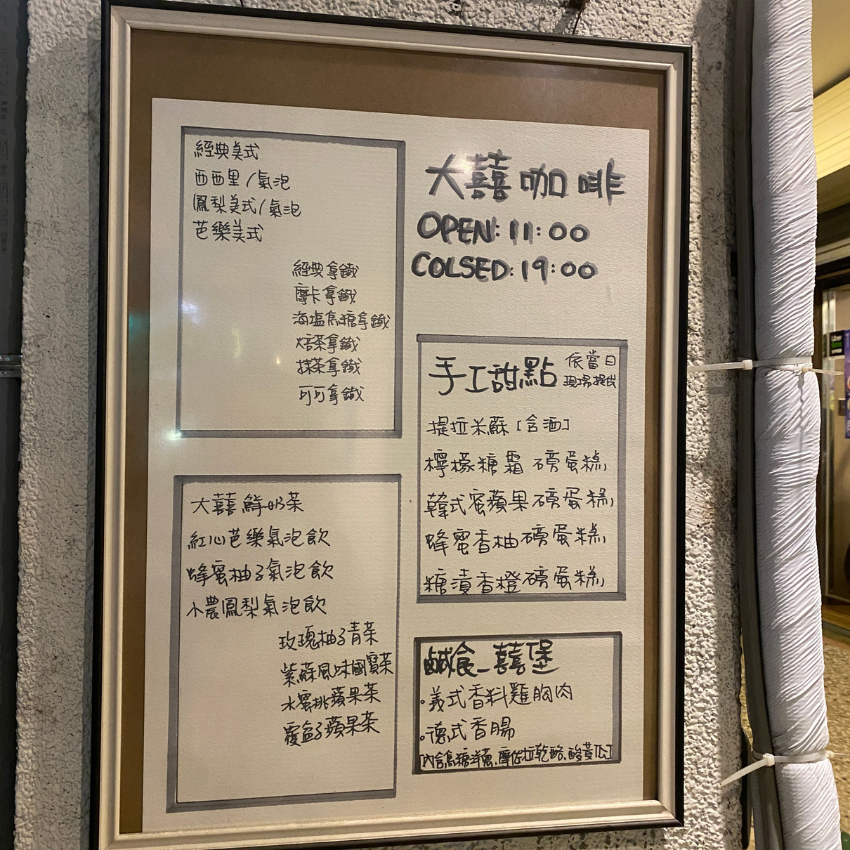 經典美式
西西里/氣泡
鳳梨美式/氣泡
芭樂美式
經典拿鐵
摩卡拿鐵
海塩焦糖拿鐵
焙茶拿鐵
抹茶拿鐵
可可拿鐵
大囍咖啡
OPEN: 11:00
COLSED: 19:00
手工甜點 依當日
現場提供
提拉米蘇[含酒]
檸檬糖霜磅蛋糕
韓式蜜蘋果磅蛋糕
蜂蜜香柚磅蛋糕
糖漬香橙磅蛋糕
大囍鮮奶茶
紅心芭樂氣泡飲
蜂蜜柚子氣泡飲
小農鳳梨氣泡飲
玫瑰柚子青茶
紫蘇風味國寶茶
水蜜桃蘋果茶
覆盆子蘋果茶
鹹食_囍堡
·義式香料雞胸肉
·德式香腸
[內含焦糖洋蔥、摩佐拉乾酪、酸黃瓜]